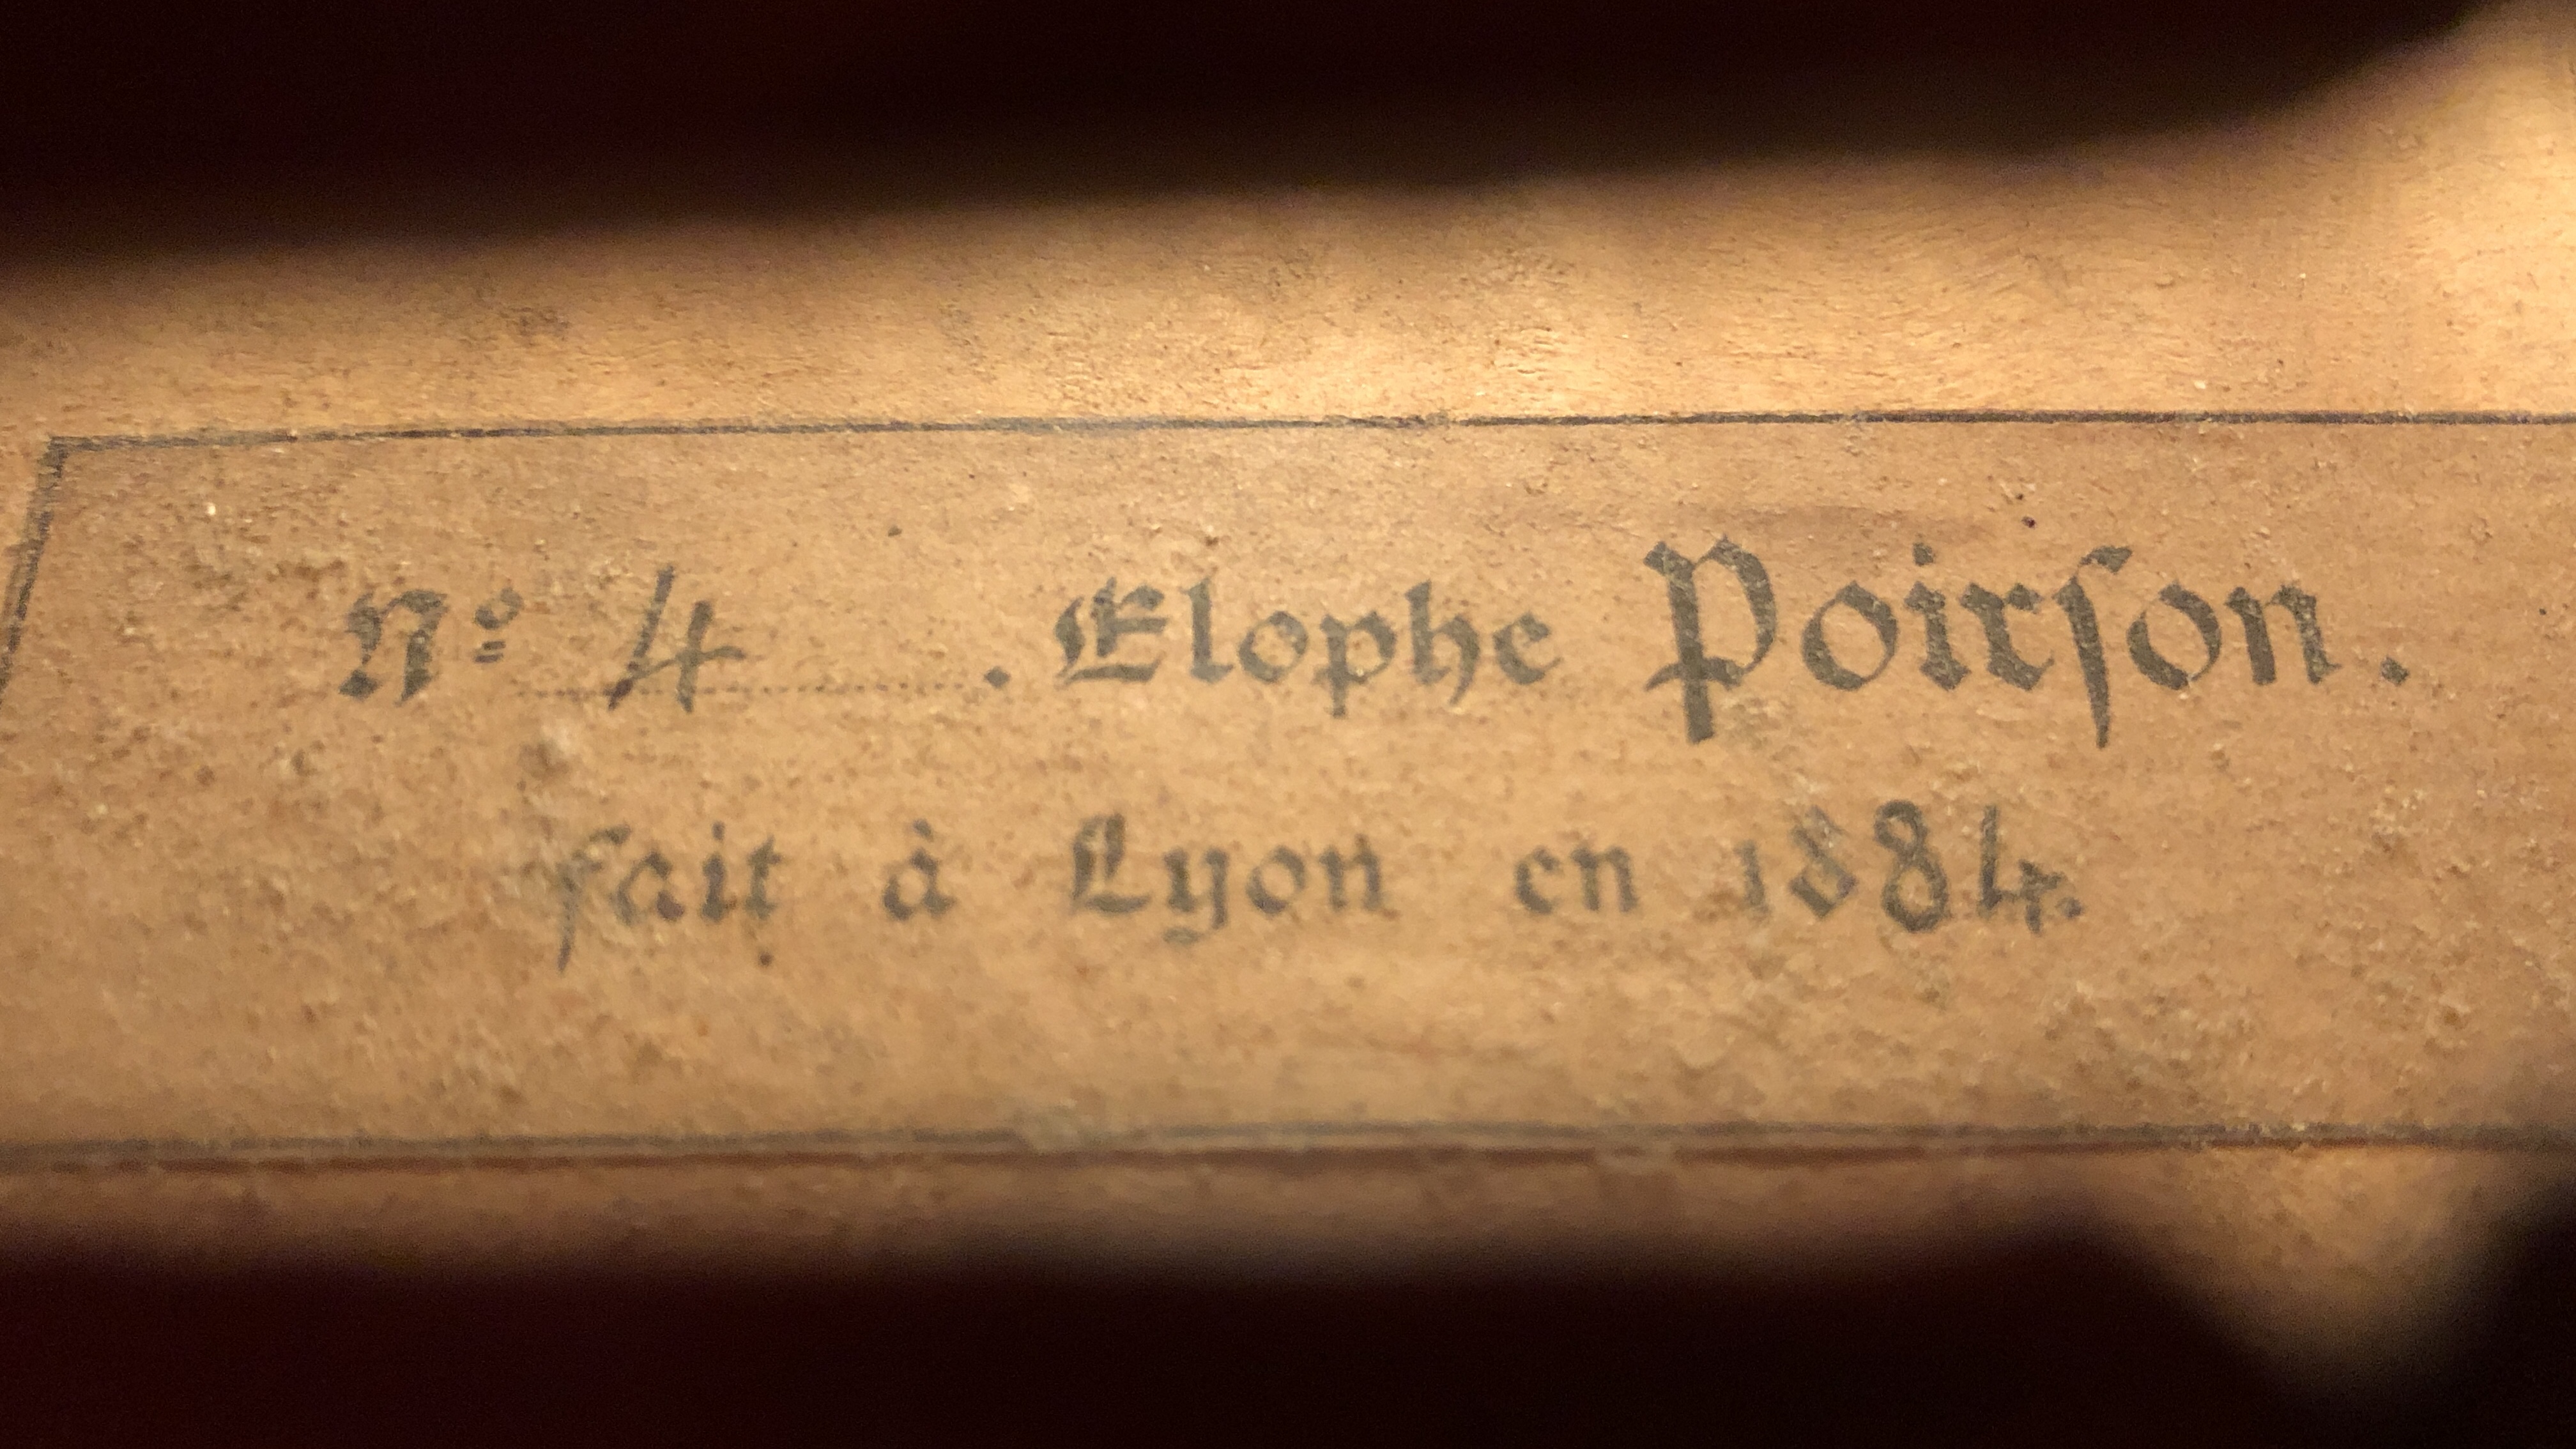 Nº 4 . Elophe Poirson.
fait à Lyon en 1884.